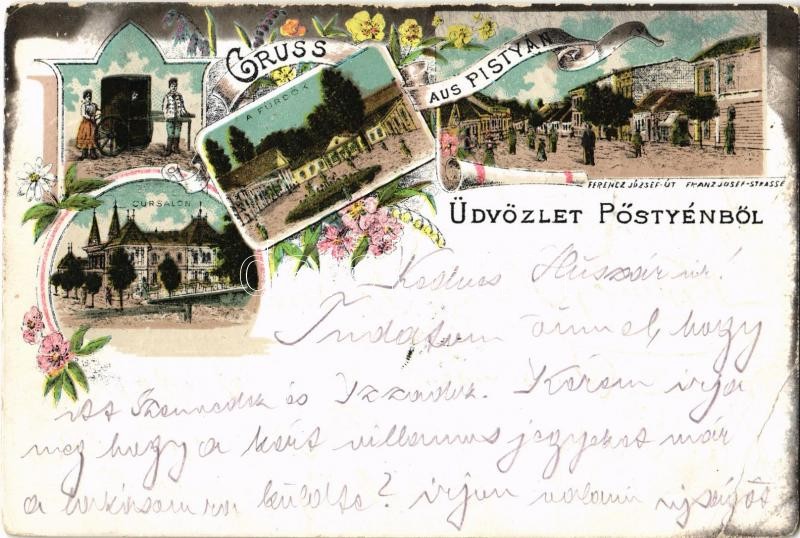 GRUSS
AUS PISTYÁN
A FÜRDŐK
CURSALON
FERENCZ JÓZSEF-ÚT FRANZ JOSEF-STRASSE
ÜDVÖZLET PŐSTYÉNBŐL
Kedves Huszár úr!
Tudatom önnel, hogy
itt Szenvedek és Izzadok. Kérem irja
meg hogy a kért villamos jegyeket már
a küldte? irjon valami ujságot